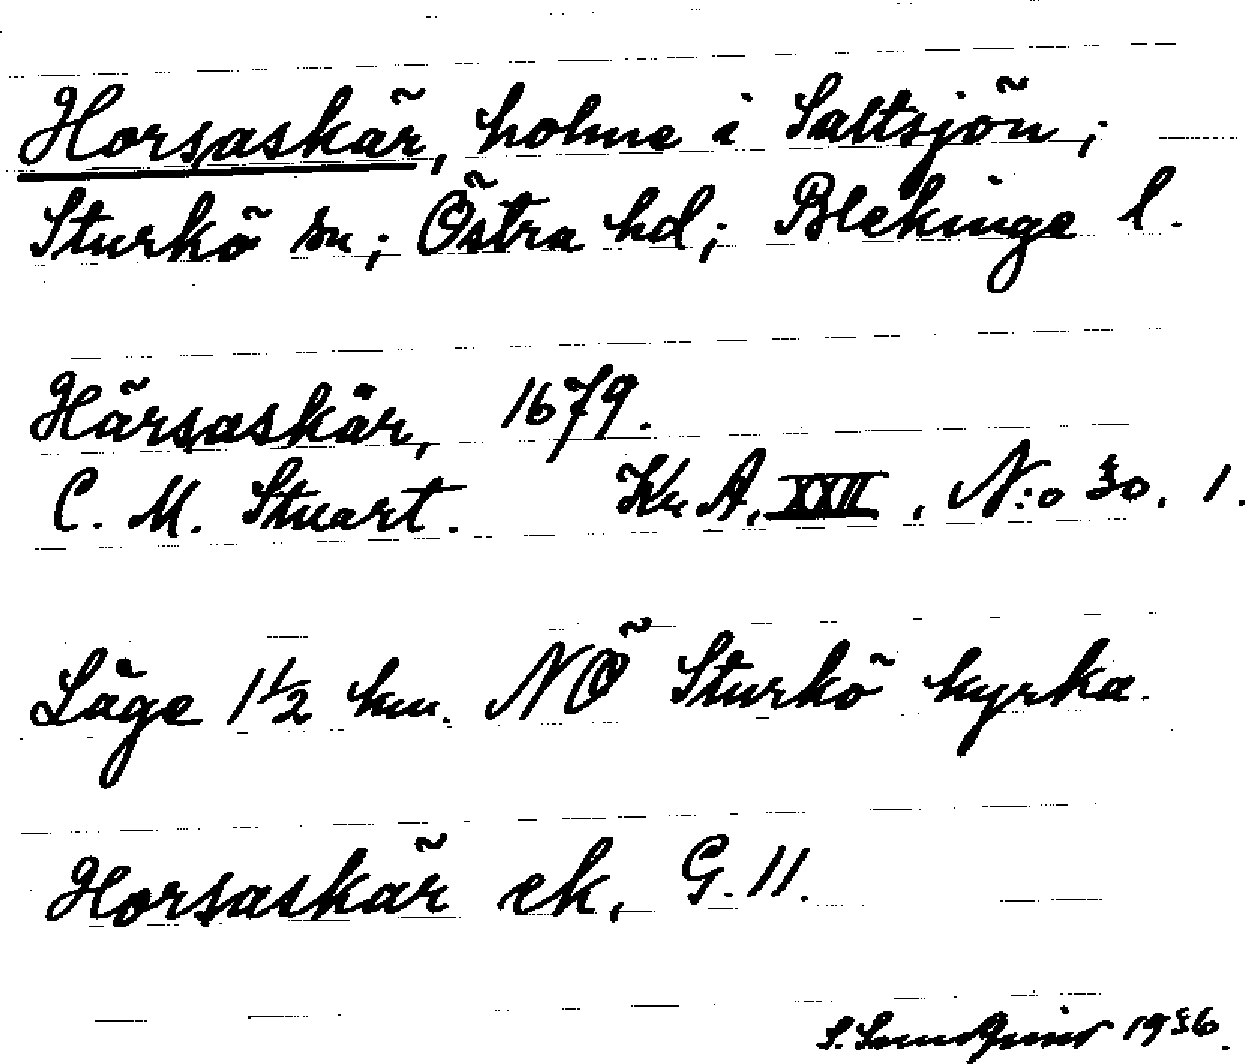 Horsaskär, holme i Saltsjön;
Sturkö sn; Östra hd; Blekinge l.
Härsaskär, 1679.
C. M. Stuart. Kr. A, XXII, N:o 30. 1.
Läge 1½ km. NÖ Sturkö kyrka.
Horsaskär ek, G. 11.
S. Sundquist 1936.